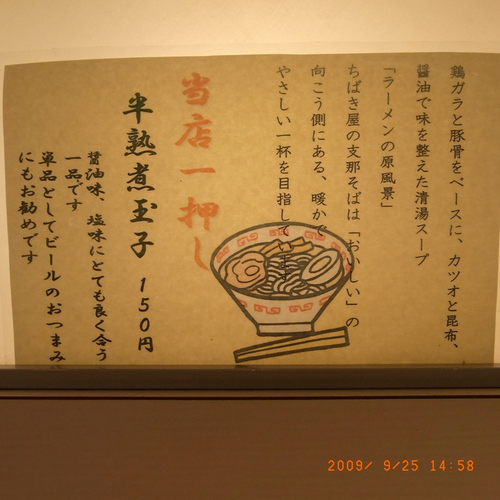 鶏ガラと豚骨をベースに、カツオと昆布、
醤油で味を整えた清湯スープ
「ラーメンの原風景」
ちばき屋の支那そばは「おいしい」の
向こう側にある、暖かく
やさしい一杯を目指しています
当店一押し
半熟煮玉子 150円
醤油味、塩味にとても良く合う
一品です
単品としてビールのおつまみ
にもお勧めです
2009/ 9/25 14:58